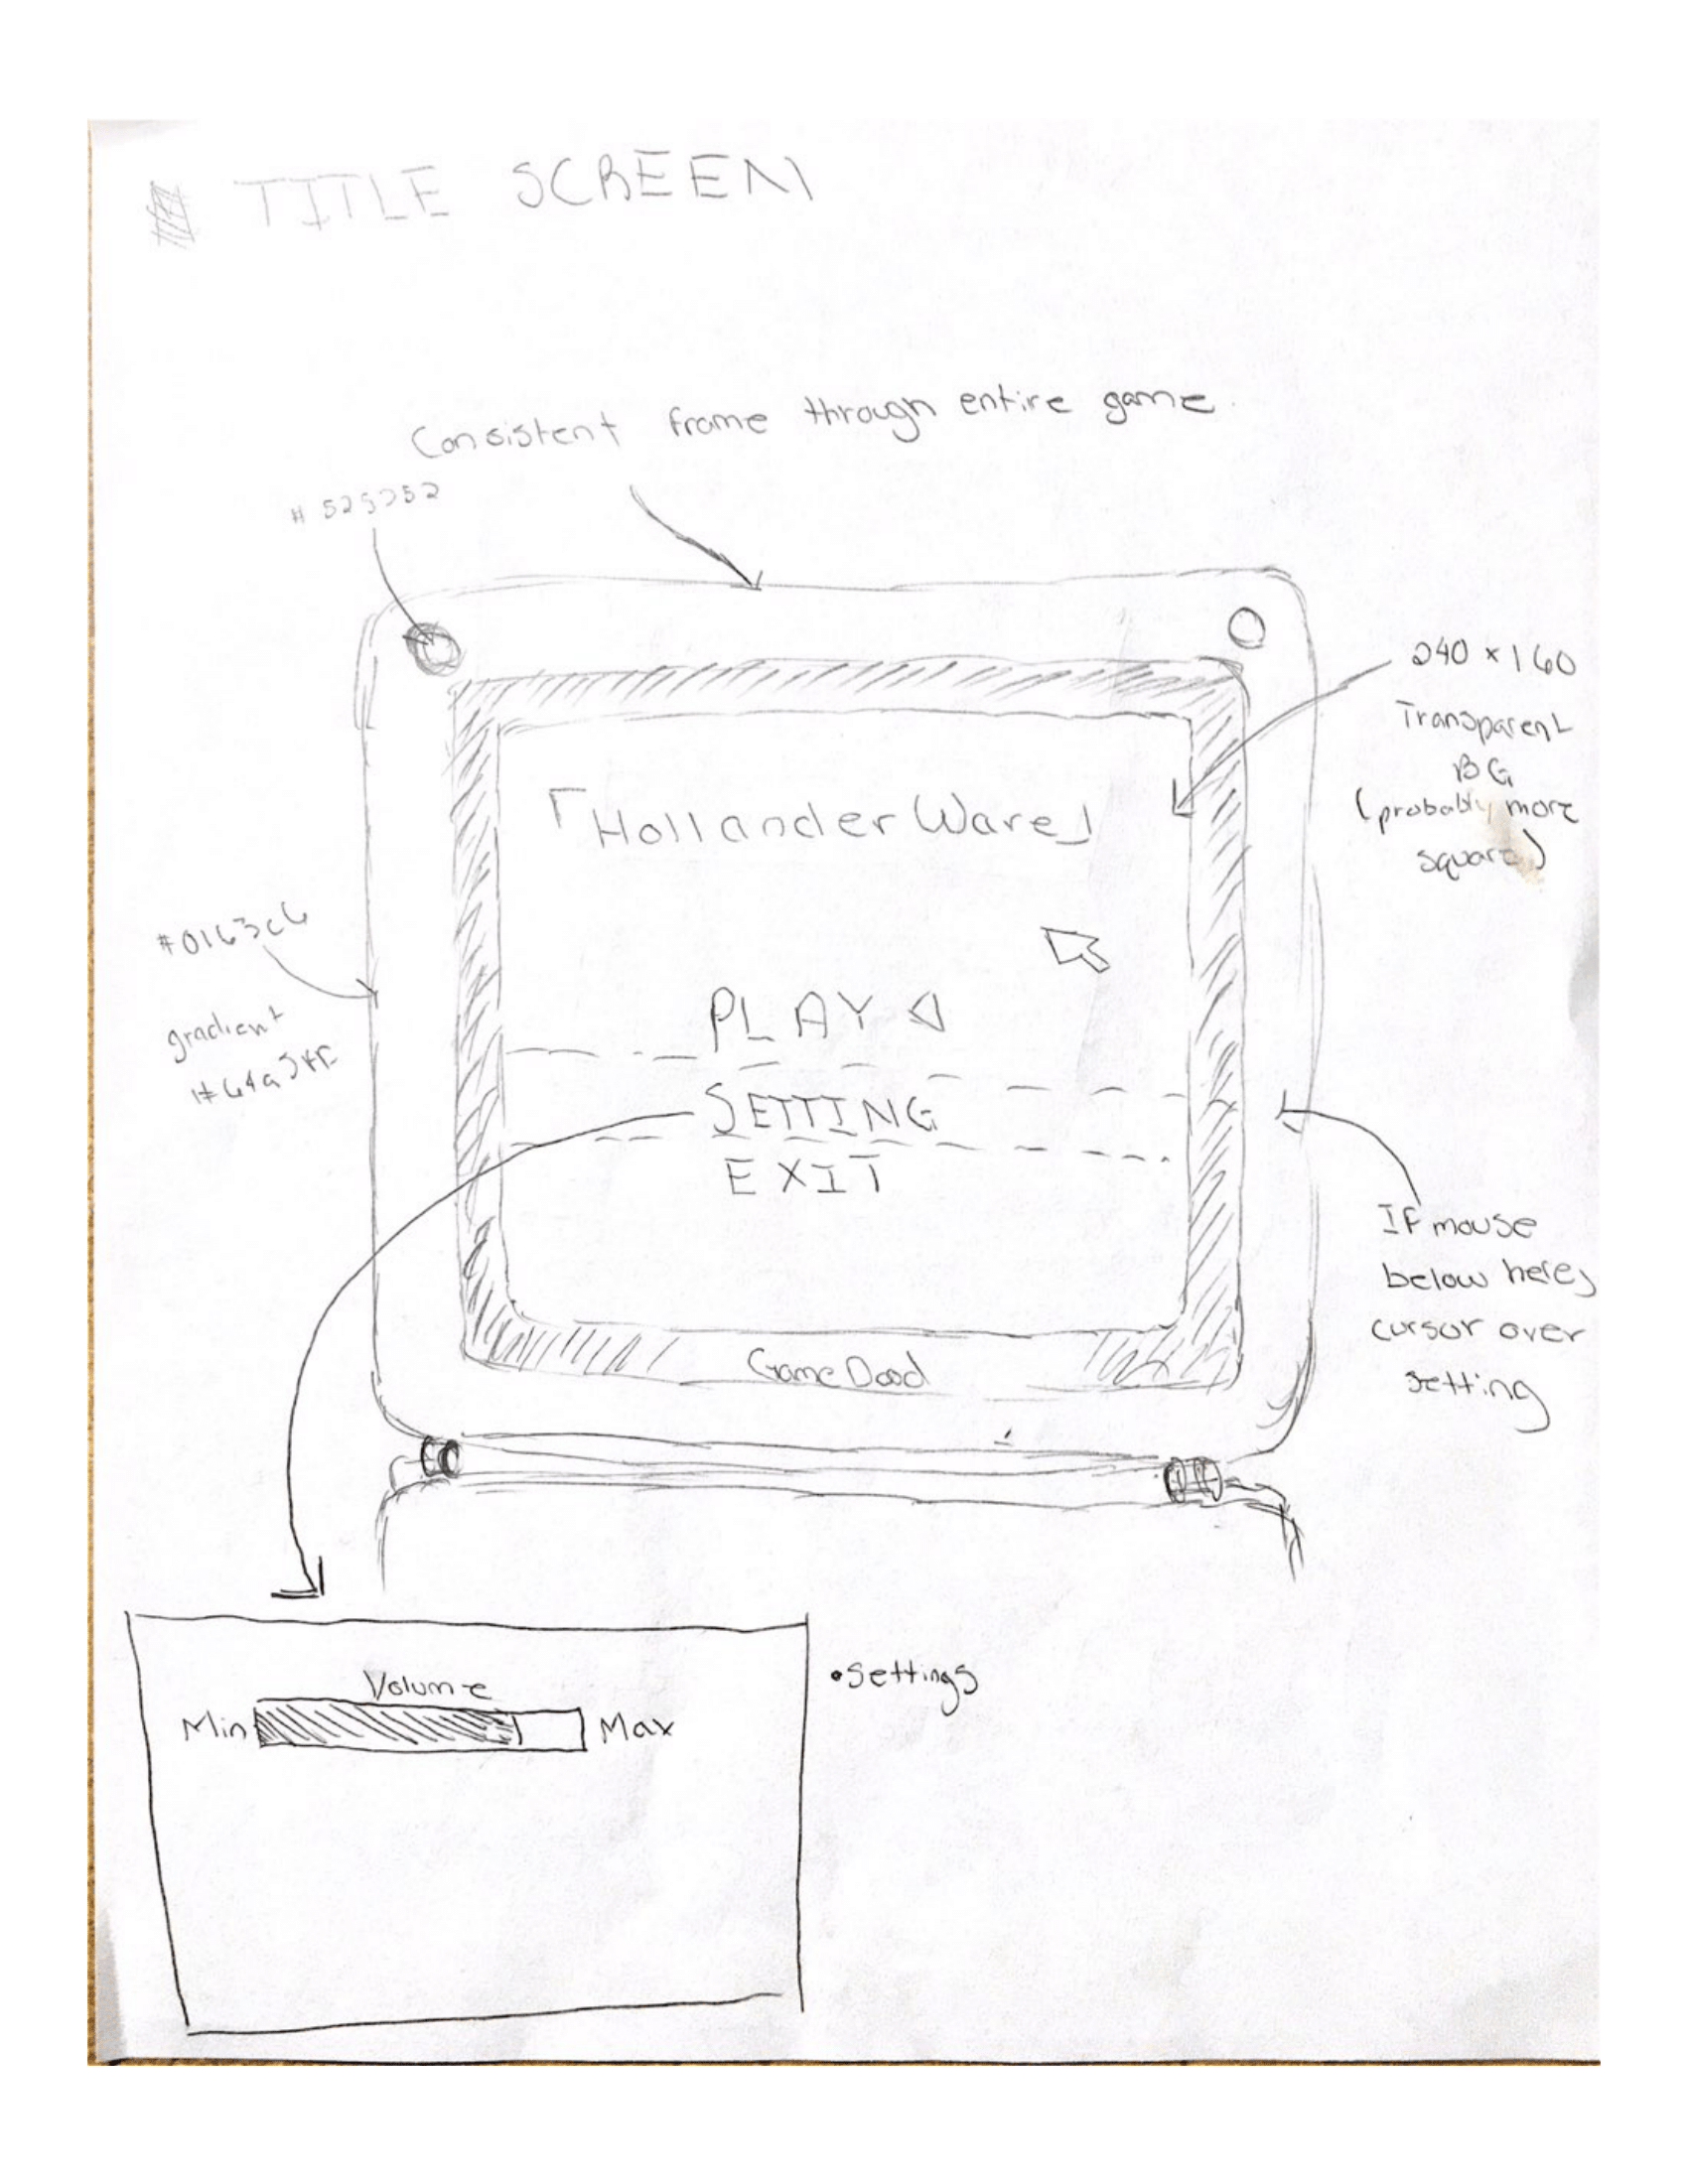 TITLE SCREEN
Consistent frame through entire game
# 525252
240 x 160
Transparent
BG
(probably more
square)
「Hollander Ware」
#0163c6
gradient
PLAY ◁
SETTING
EXIT
If mouse
below here,
cursor over
setting
Game Dood
Volume
Min
Max
•Settings